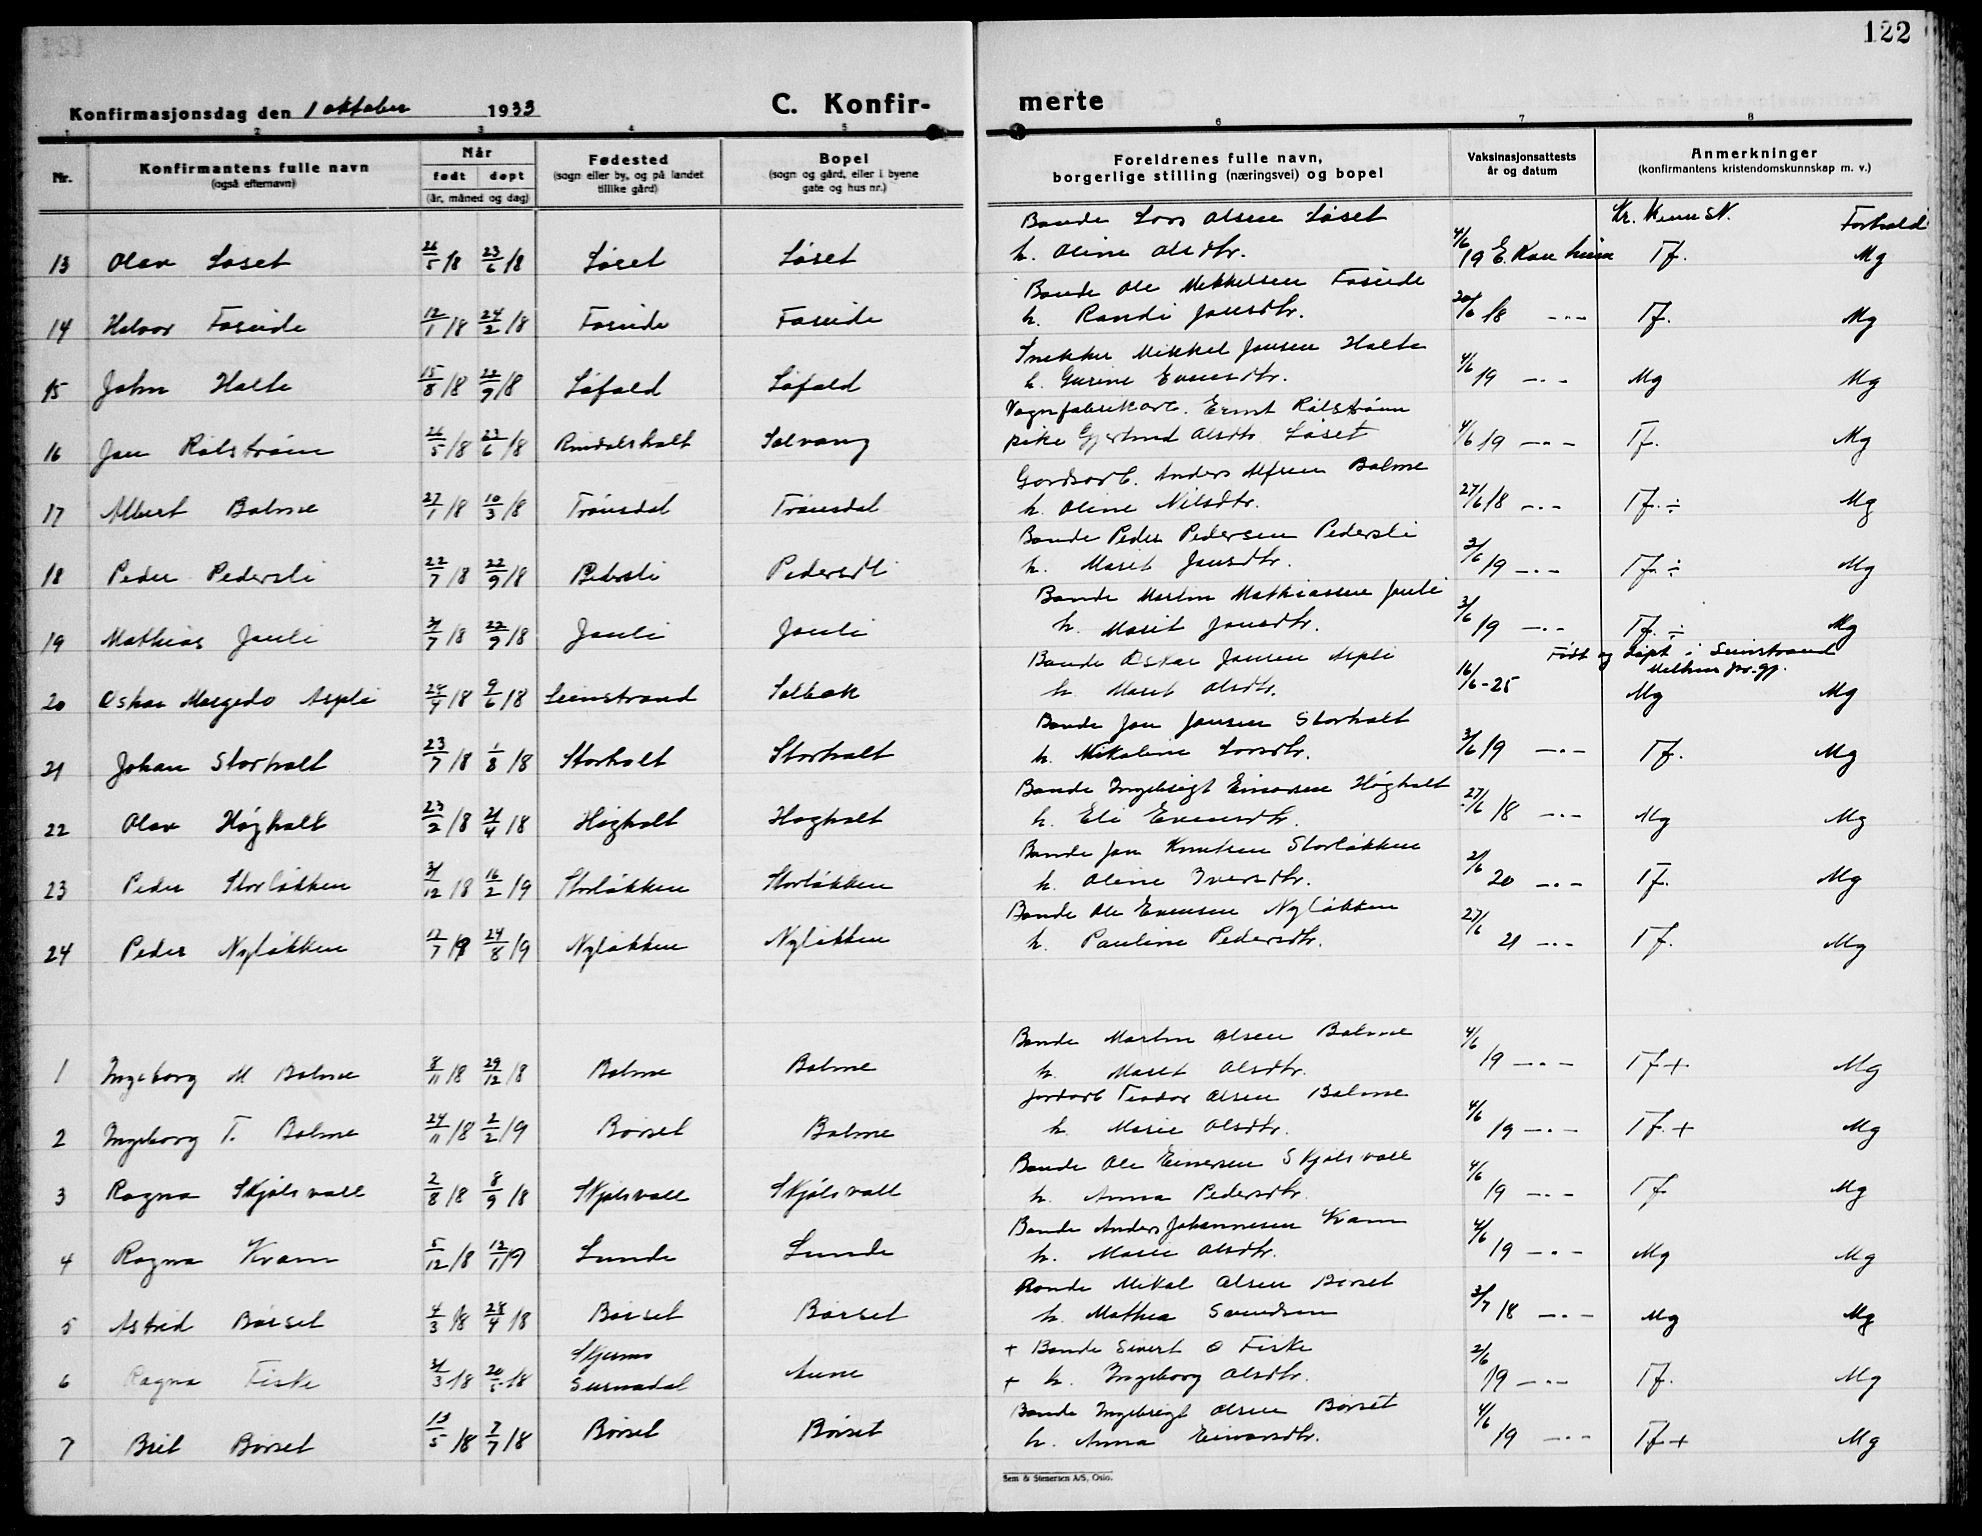 122
Konfirmasjonsdag den 1 oktober 1933
C. Konfir-
merte
1 2 3 4 5 6 7 8
Nr.
Konfirmantens fulle navn
(også efternavn)
Når
født døpt
(år, måned og dag)
Fødested
(sogn eller by, og på landet
tillike gård)
Bopel
(sogn og gård, eller i byene
gate og hus nr.)
Foreldrenes fulle navn,
borgerlige stilling (næringsvei) og bopel
Vaksinasjonsattests
år og datum
Anmerkninger
(konfirmantens kristendomskunnskap m. v.)
Bonde Lars Olsen Løset Forhold
13 Olav Løset 26/5 18 23/6 18 Løset Løset h. Oline Olsdtr. 4/6 19 Tf. Mg
Bonde Ole Mikkelsen
14 Halvor 12/1 18 24/2 18 h. Randi Jonsdtr. 20/6 18 -"- Tf. Mg
Snekker Mikkel Jonsen Halte
15 John Halte 15/8 18 22/9 18 Løfald Løfald h. Gurine Evensdtr. 4/6 19 -"- Mg Mg
Vognfabrikarb. Ernst Rølstrøm
16 Jon Rølstrøm 26/5 18 23/6 18 Rindalsholt Solvang pike Gjertrud Olsdtr. Løset 4/6 19 -"- Tf. Mg
Gardsarb. Anders Balme
17 Albert Balme 27/1 18 10/3 18 Trønsdal Trønsdal h. Oline Nilsdtr. 27/6 18 -"- Tf. ÷ Mg
Bonde Peder Pedersen Pedersli
18 Peder Pedersli 22/7 18 22/9 18 Pedersli Pedersli h. Marit Jonsdtr. 3/6 19 -"- Tf. ÷ Mg
Bonde Martin Mathiassen Jonli
19 Mathias Jonli 31/7 18 22/9 18 Jonli Jonli h. Marit Jonsdtr. 3/6 19 -"- Tf. ÷ Mg
Bonde Oskar Jonsen Aspli Født og døpt i Leinstrand
Melhus pr.gj.
20 Oskar Aspli 24/4 18 9/6 18 Leinstrand Solbak h. Marit Olsdtr. 16/6-25 Mg Mg
Bonde Jon Jonsen Storholt
21 Johan Storholt 23/7 18 1/8 18 Storholt Storholt h. Nikoline Larsdtr. 3/6 19 -"- Tf. Mg
Bonde Ingebrigt Høgholt
22 Olav Høgholt 23/2 18 21/4 18 Høgholt Høgholt h. Eli Evensdtr. 27/6 18 -"- Mg Mg
Bonde Jon Knutsen Storløkken
23 Peder Storløkken 31/12 18 16/2 19 Storløkken Storløkken h. Oline Iversdtr. 2/6 20 -"- Tf. Mg
Bonde Ole Evensen Nyløkken
24 Peder Nyløkken 24/8 19 Nyløkken Nyløkken h. Pauline Pedersdtr. 27/6 21 -"- Tf. Mg
Bonde Martin Olsen Bolme
1 Ingeborg M Bolme 8/11 18 29/12 18 Bolme Bolme h. Marit Olsdtr. 4/6 19 -"- Tf + Mg
Jordarb Teodor Olsen Bolme
2 Ingeborg T. Bolme 24/11 18 2/2 19 Børset Bolme h. Marie Olsdtr. 4/6 19 -"- Tf. + Mg
Bonde Ole Einersen Skjølsvoll
3 Ragna Skjølsvoll 2/8 18 8/9 18 Skjølsvoll Skjølsvoll h. Anna Pedersdtr. 4/6 19 -"- Tf Mg
Bonde Anders Johannesen Kvam
4 Ragna Kvam 5/12 18 12/1 19 Lunde Lunde h. Marie Olsdtr. 4/6 19 -"- Mg Mg
Bonde Mikal Olsen Børset
5 Astrid Børset 4/3 18 28/4 18 Børset Børset h. Mathea Svendsen 3/7 18 -"- Mg Mg
+ Bonde Sivert O Fiske
6 Ragna Fiske 31/3 18 20/5 18 Skjermo Surnadal Aune + h. Ingeborg Olsdtr. 2/6 19 -"- Tf. Mg
Bonde Ingebrigt Olsen Børset
7 Brit Børset 13/5 18 7/7 18 Børset Børset h. Anna Einarsdtr. 4/6 19 -"- Tf + Mg
Sem & Stenersen A/S, Oslo.